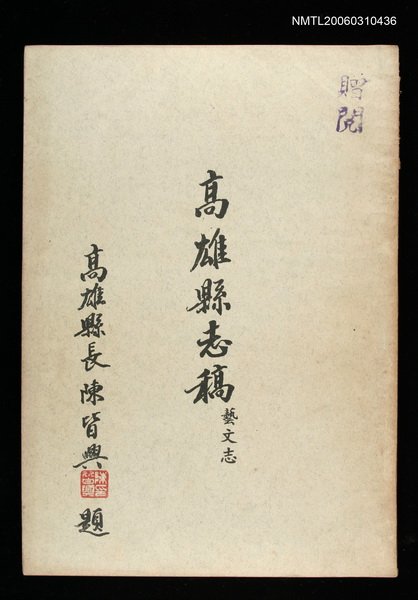 NMTL20060310436
贈閱
高雄縣志稿 藝文志
高雄縣長陳皆興題